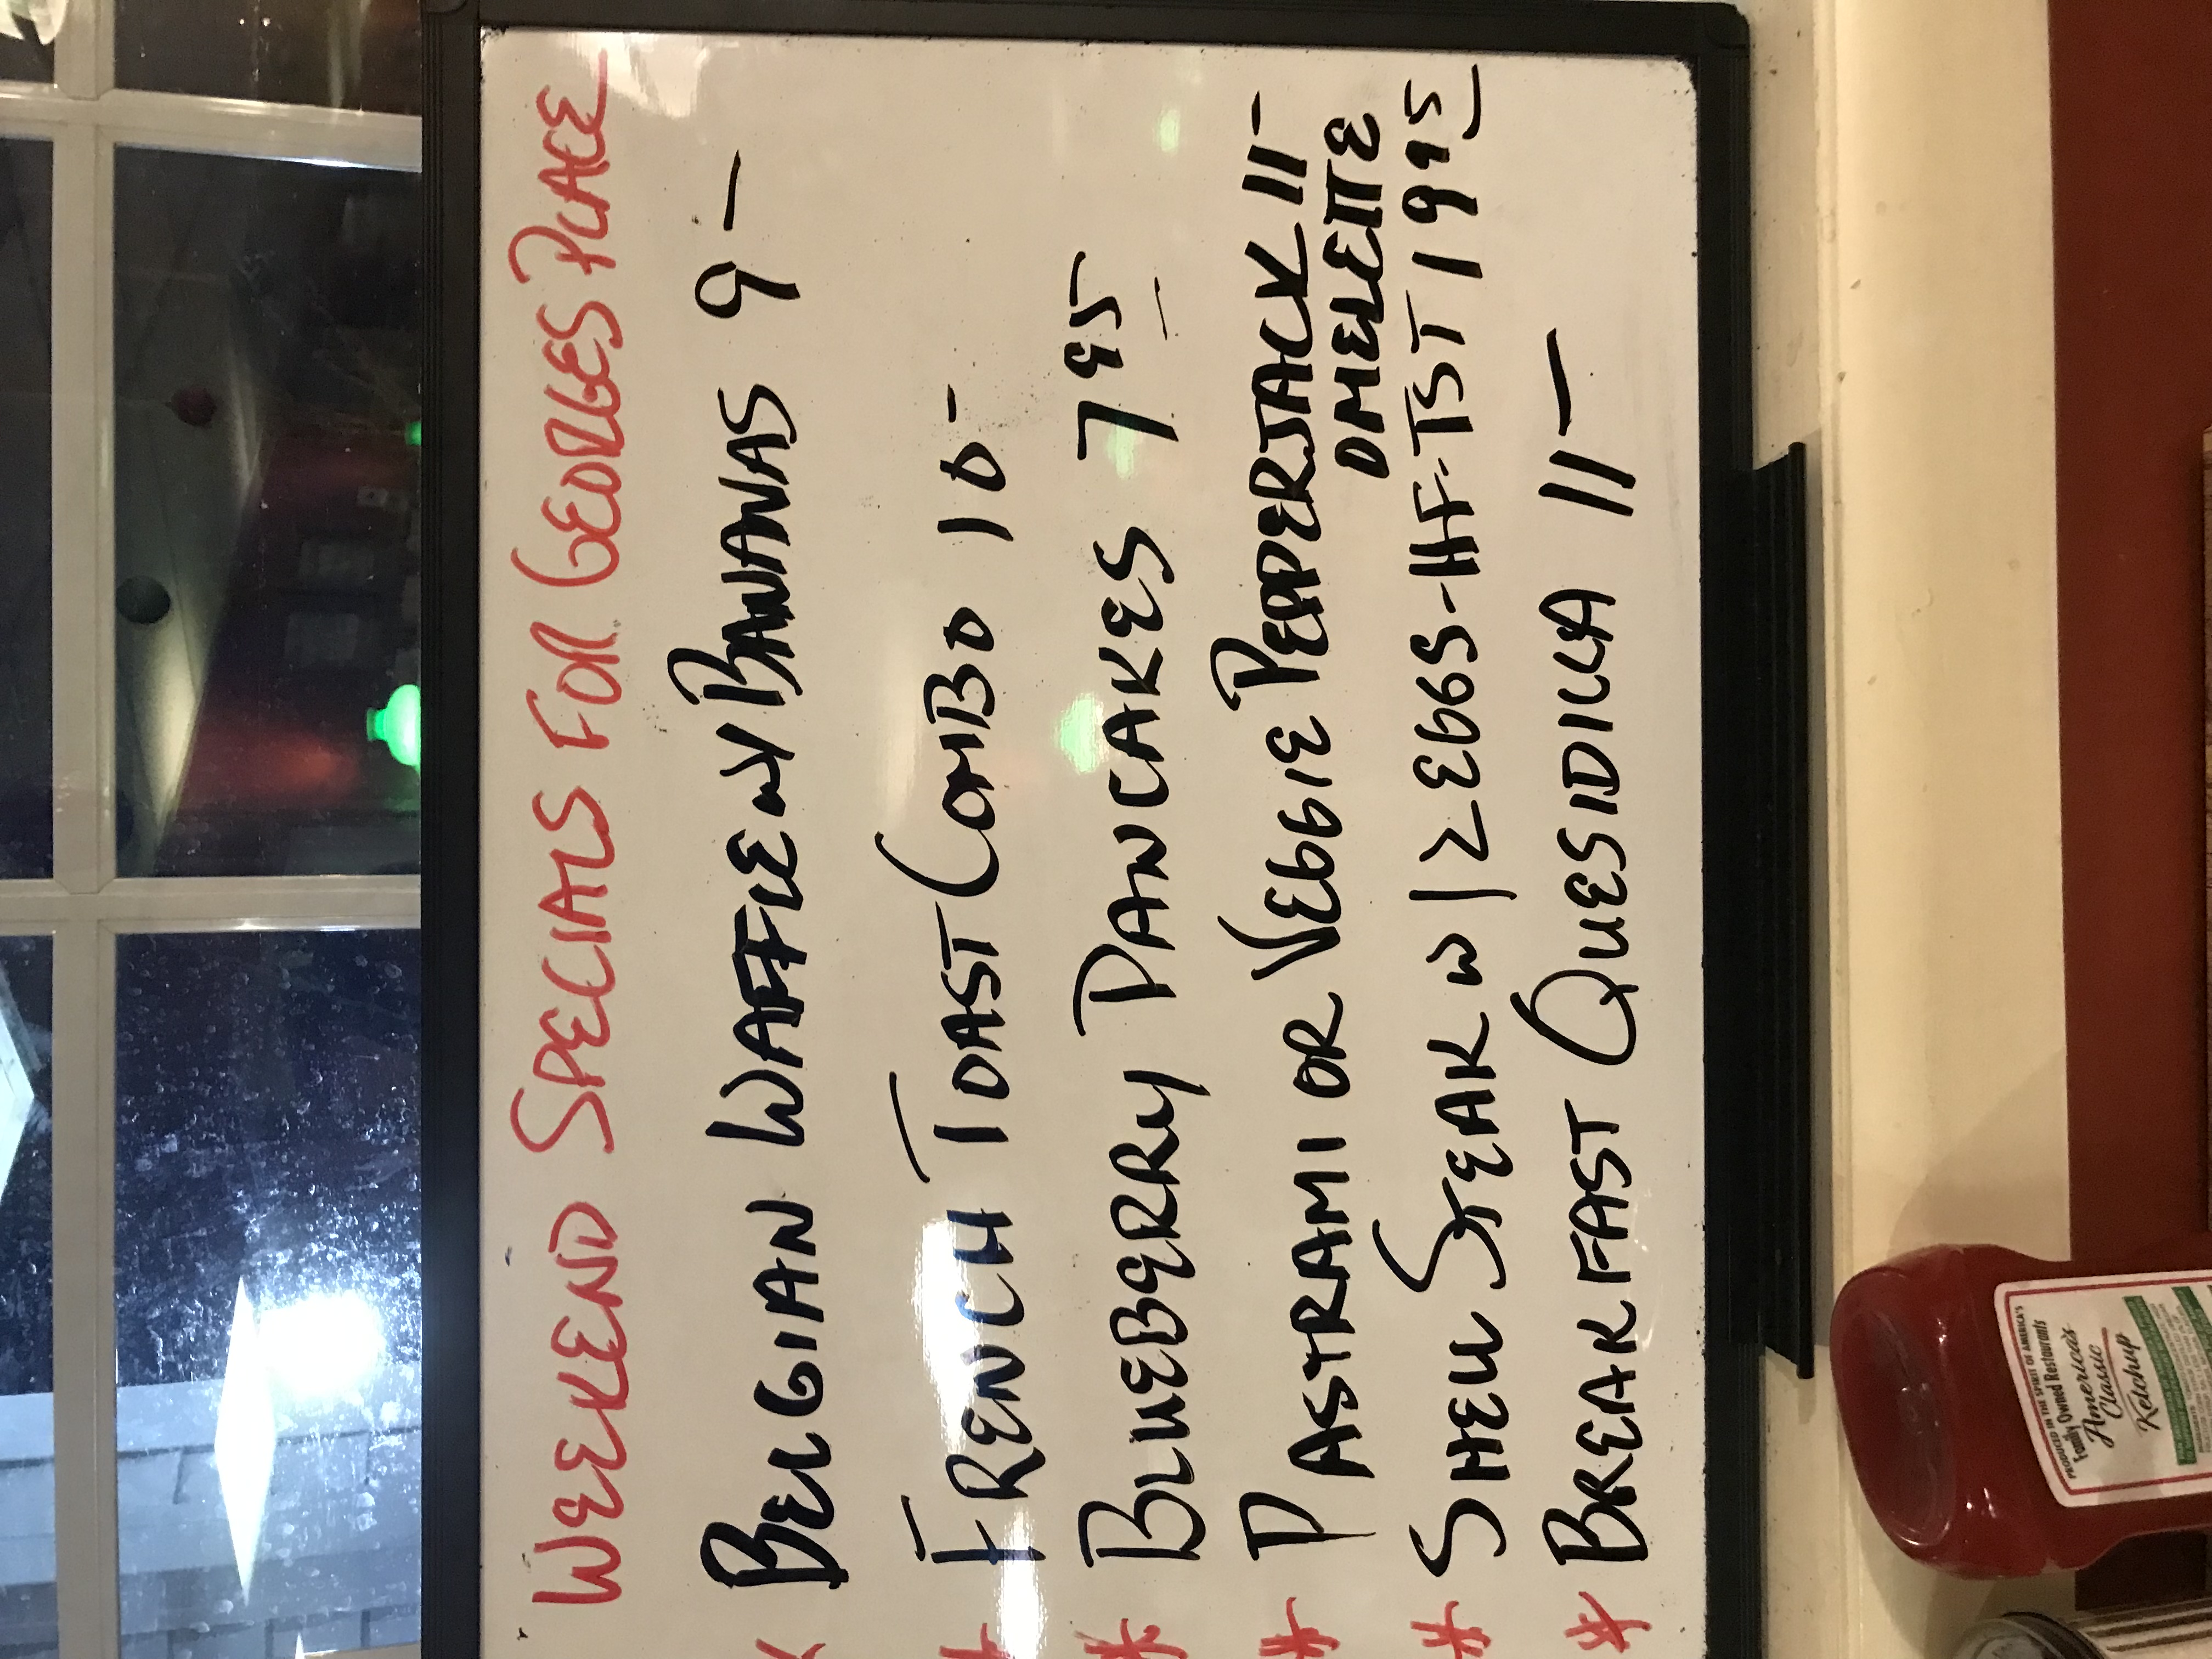 WEEKEND SPECIALS FOR GEORGES PLACE
* BELGIAN WAFFLE w/ BANANAS 9-
* FRENCH TOAST COMBO 10-
* BLUEBERRY PANCAKES 7 95
* PASTRAMI OR VEGGIE PEPPERJACK 11-
OMELETTE
* SHELL STEAK w/ 2 EGGS-HF-TST 19 95
* BREAKFAST QUESIDILLA 11-
PRODUCED IN THE SPIRIT OF AMERICA'S
Family Owned Restaurants
America's
Classic
Ketchup